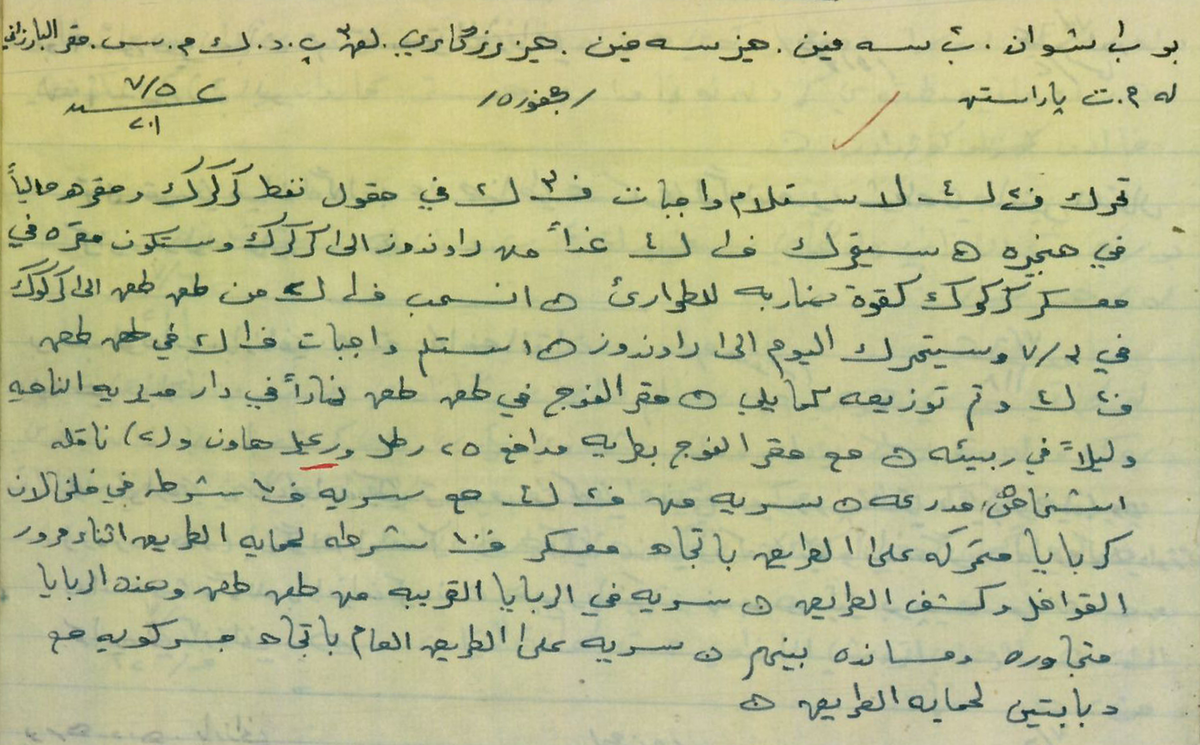 بو ب شوان . ب سه فين . هيز سه فين . هيز رزگاري . لق٣ پ . د . ك م . س . مقر البارزاني
له م . ت پاراستن /جفره/ ٧/٥
تحرك ف٢ ل٤ لاستلام واجبات ف٣ ل٢ في حقول نفط كركوك ومقره حالياً
في هنجيره ه سيتحرك ف١ ل٤ غداً من راوندوز الى كركوك وستكون مقره في
معسكر كركوك كقوة ضاربه للطوارئ ه انسحب ف١ ل٢ من طق طق الى كركوك
في ٧/٣ وسيتحرك اليوم الى راوندوز ه استلم واجبات ف١ ل٢ في طق طق
ف٢ ل٤ وتم توزيعه كمايلي ه مقر الفوج في طق طق نهاراً في دار مديريه الناحيه
وليلاً في ربيئه ه مع مقر الفوج بطريه مدافع ٢٥ رطل ورعيل هاون و(٢) ناقله
اشخاص مدرعه ه سريه من ف٢ ل٤ مع سريه ف١٠ شرطه في قلخالان
كربايا متحركه على الطريق باتجاه معسكر ف١٠ شرطه لحمايه الطريق اثناء مرور
القوافل وكشف الطريق ه سريه في الربايا القريبه من طق طق وهذه الربايا
متجاوره ومسانده بينهم ه سريه على الطريق العام باتجاه جسر كويه مع
دبابتين لحمايه الطريق ه